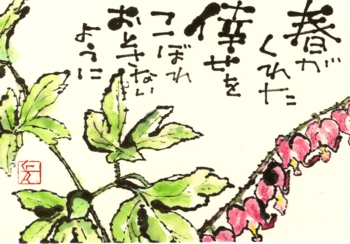 春が
くれた
倖せを
こぼれ
おとさない
ように